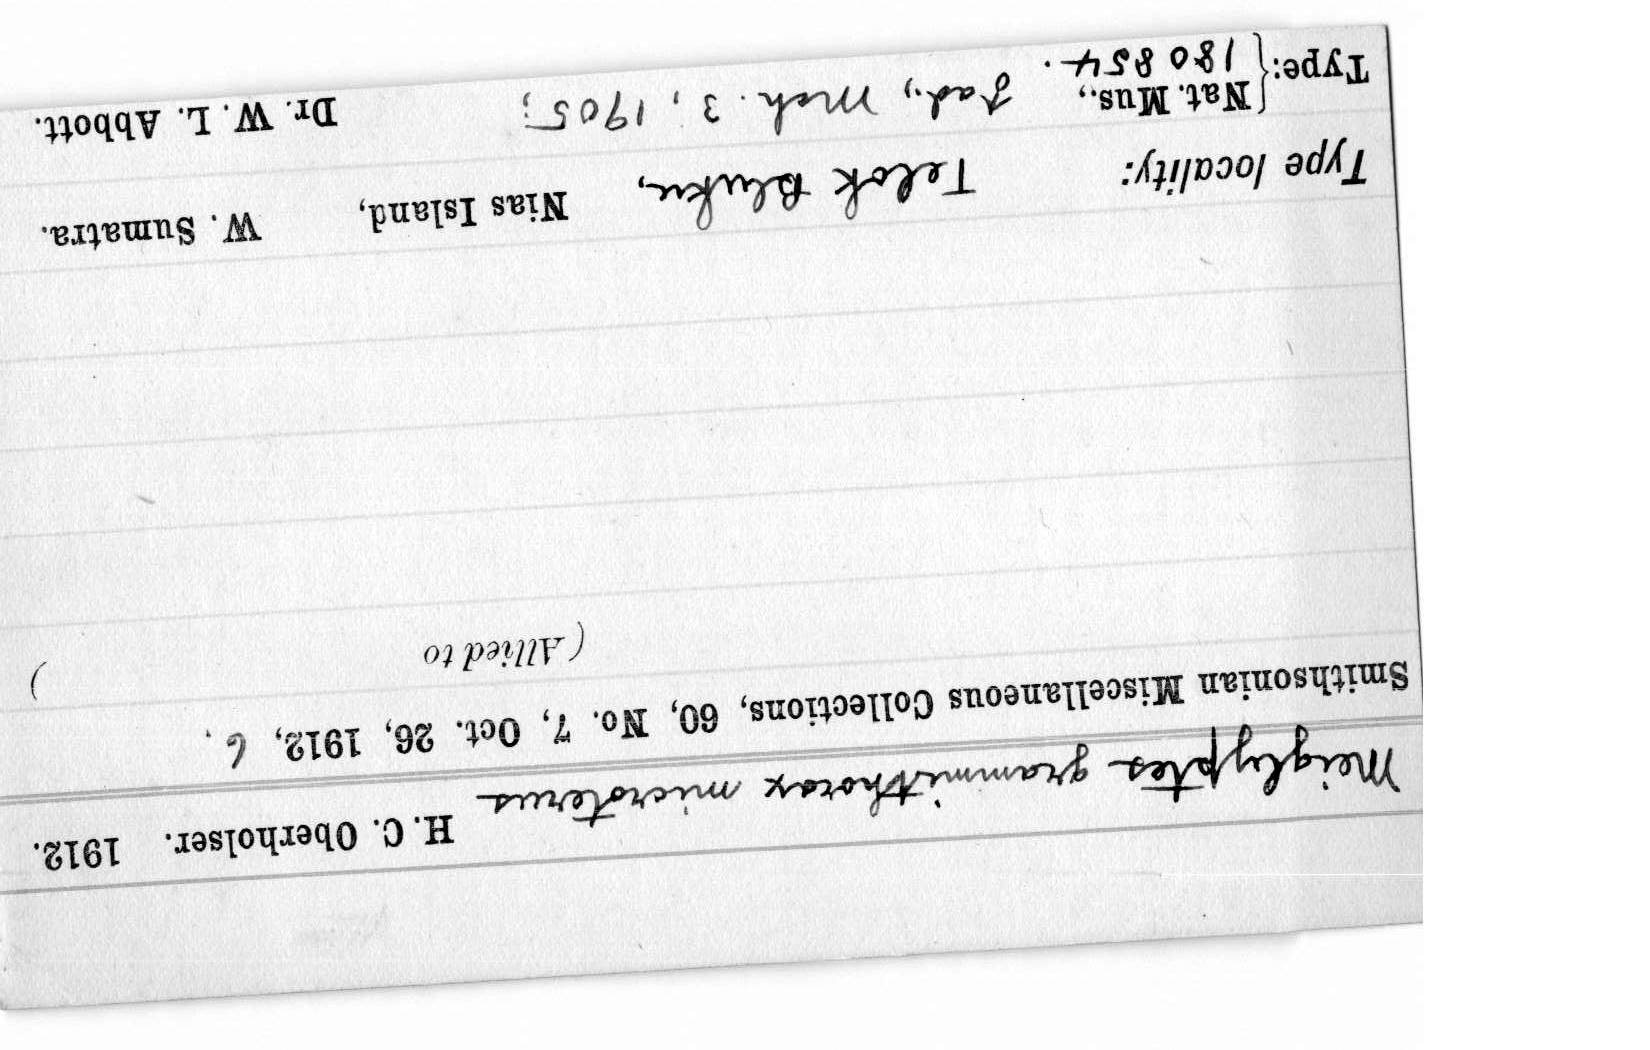 Meiglyptes grammithorax microterus H. C. Oberholser. 1912.
Smithsonian Miscellaneous Collections, 60, No. 7, Oct. 26, 1912, 6.
(Allied to )
Type locality: Telok Bluku, Nias Island, W. Sumatra.
Type: {Nat. Mus., ad., Mch. 3, 1905; Dr. W. L. Abbott.
180854.